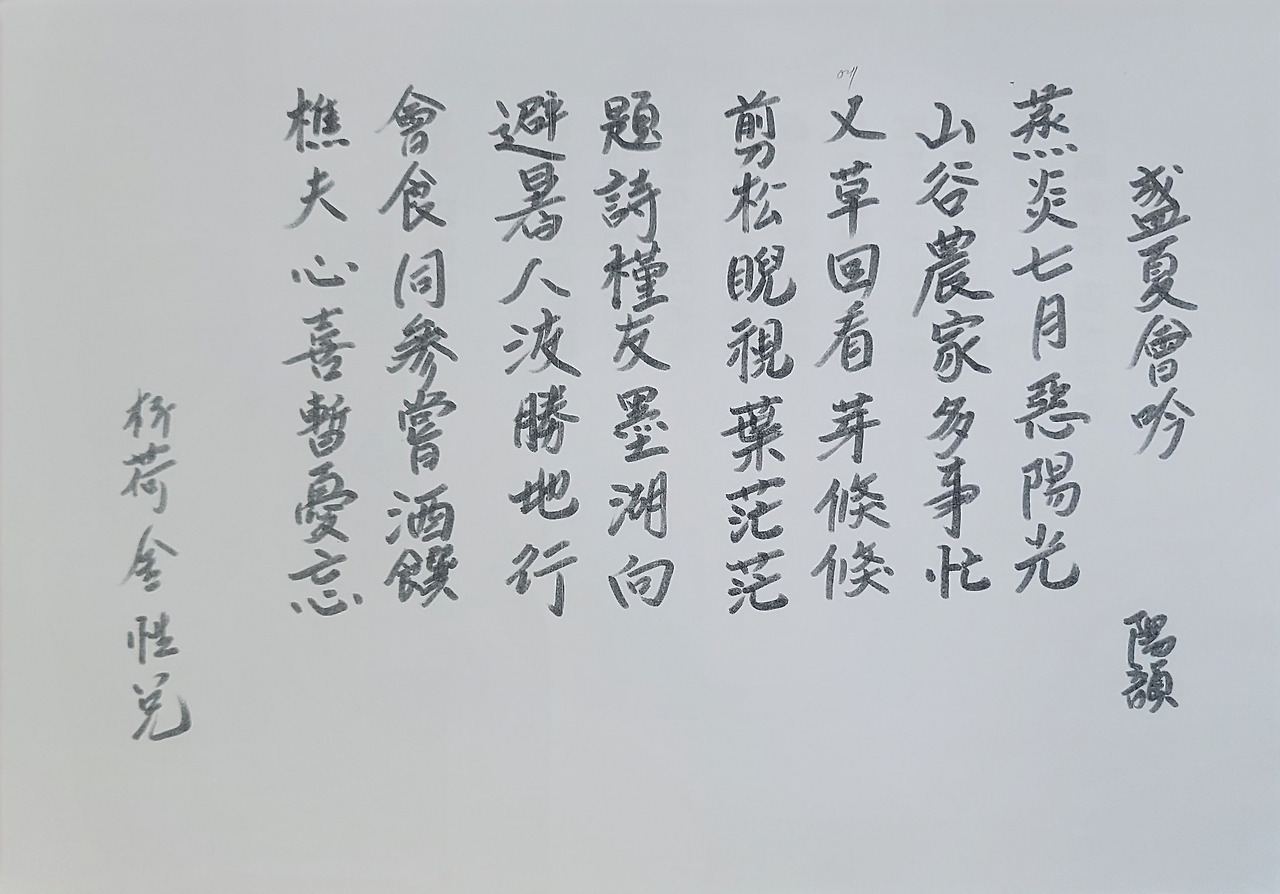 盛夏會吟 陽韻
蒸炎七月惡陽光
山谷農家多事忙
又草回看芽倏倏
剪松睨視葉茫茫
題詩槿友墨湖向
避暑人波勝地行
會食同參嘗酒饌
樵夫心喜暫憂忘
荷 金性兌